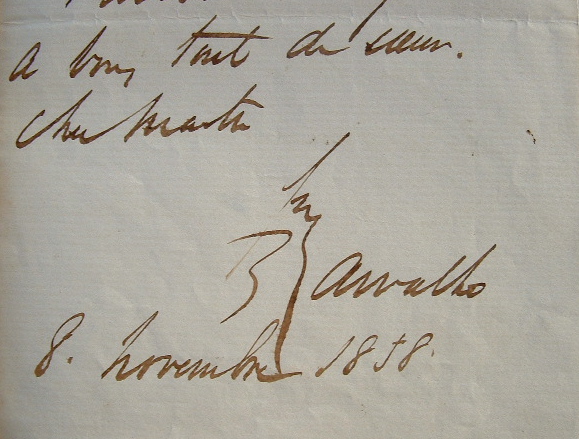 à vous tout de cœur.
cher maître
Carvalho
8. novembre 1858.